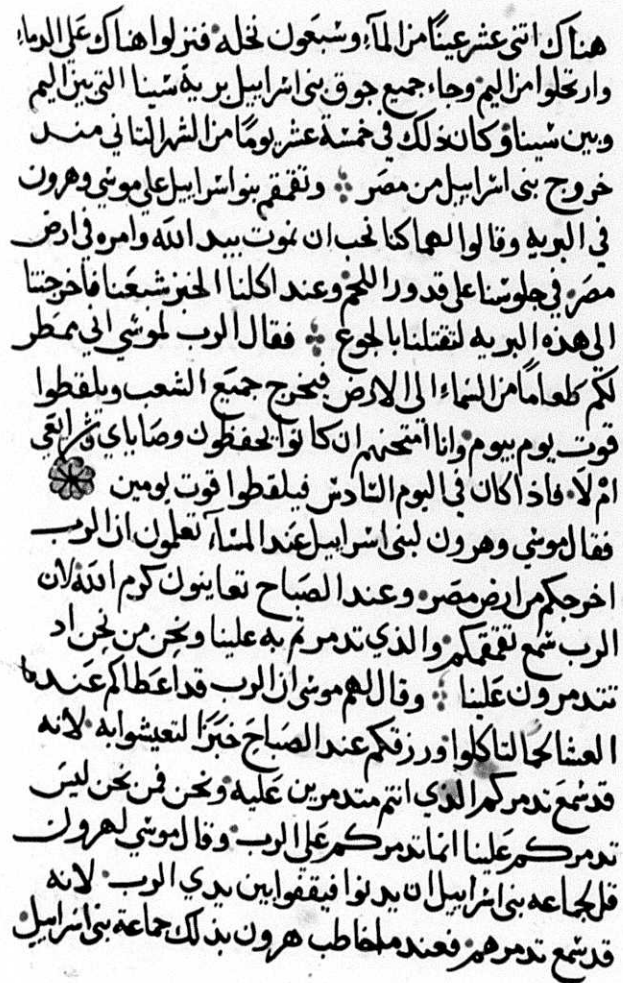 هناك اتنى عشر عينًا من المآء وشبعون نخله فنزلوا هناك على الدماء
وارتحلوا من اليم وجاء جميع جوق بنى اسراييل برية شينا التى بين اليم
وبين شينا وكان ذلك في خمسة عشر يومًا من الشهر التاني مند
خروج بنى اسراييل من مصر وتقمقم بنو اسراييل على موشي وهرون
في البريه وقالوا لهما كنا نحب ان نموت بيد الله وامره في ارض
مصر في جلوسنا على قدور اللحم وعند اكلنا الخبز شبعنا فاخرجتنا
الى هذه البريه لتقتلنا بالجوع فقال الرب لموشي اني ممطر
لكم طعامًا من السماء الى الارض فيخرج جميع الشعب ويلقطوا
قوت يوم بيوم وانا امتحنهم ان كانوا يحفظون وصاياي
ام لا فاذا كان في اليوم السادس فيلقطوا قوت يومين
فقال موشي وهرون لبنى اسراييل عند المسآء تعلمون ان الرب
اخرجكم من ارض مصر وعند الصباح تعاينون كرم الله لان
الرب شمع تقمقمكم والذي تدمرتم به علينا ونحن من نحن اد
تتدمرون علينا وقال لهم موشى ان الرب قد اعطاكم عند ما
العشا لحمًا لتاكلوا ورزقكم عند الصباح خبزًا لتعيشوا به لانه
قد شمع تدمركم الذي انتم متدمرين عليه ونحن فمن نحن ليس
تدمركم علينا انما تدمركم على الرب وقال موشي لهرون
قل لجماعه بنى اسراييل ان يدنوا فيقفوا بين يدي الرب لانه
قد شمع تدمرهم فعندما خاطب هرون بذلك جماعة بنى اسراييل